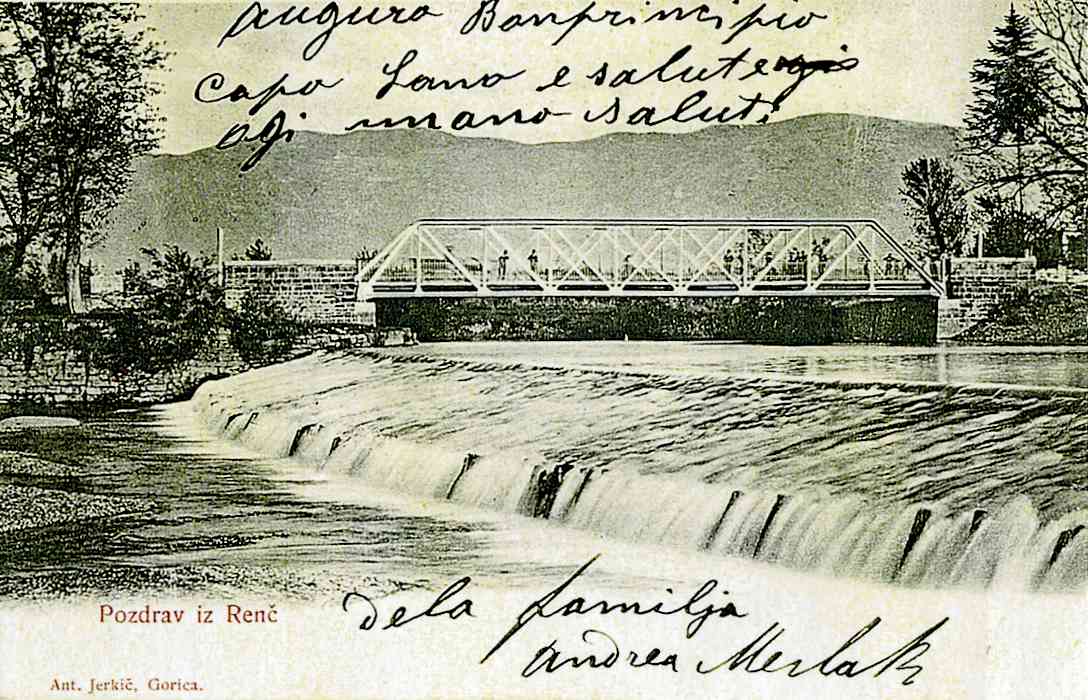 auguro Bonprincipio
capo Lano e salute
ogi mano saluti
dela familja
andrea Merlak
Pozdrav iz Renč
Ant. Jerkič, Gorica.